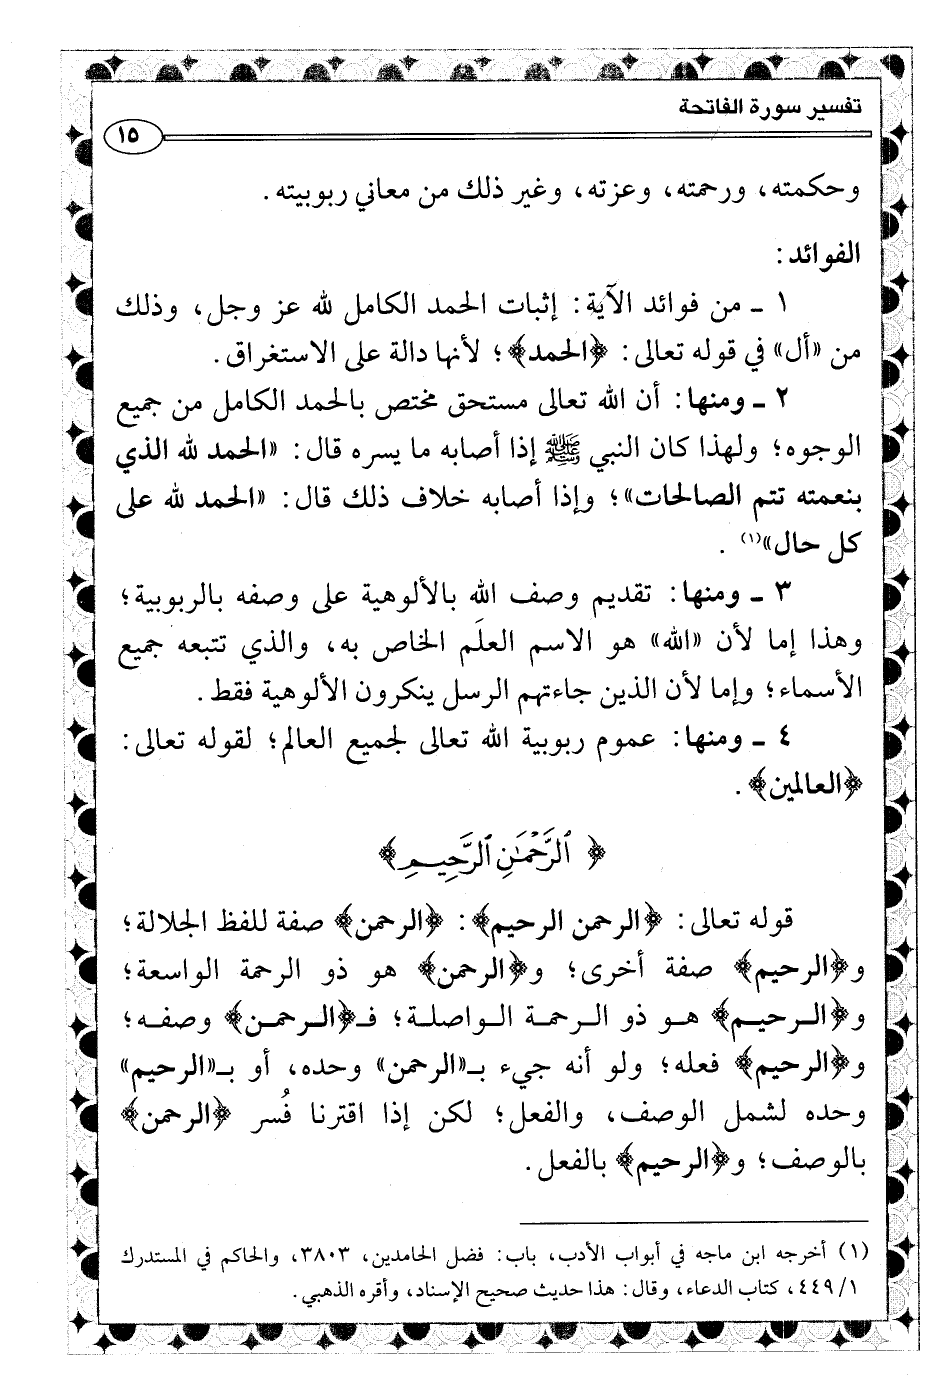 تفسير سورة الفاتحة
١٥
وحكمته، ورحمته، وعزته، وغير ذلك من معاني ربوبيته.
الفوائد:
١ ـ من فوائد الآية: إثبات الحمد الكامل لله عز وجل، وذلك
من «أل» في قوله تعالى: ﴿الحمد﴾؛ لأنها دالة على الاستغراق.
٢ ـ ومنها: أن الله تعالى مستحق مختص بالحمد الكامل من جميع
الوجوه؛ ولهذا كان النبي ﷺ إذا أصابه ما يسره قال: «الحمد لله الذي
بنعمته تتم الصالحات»؛ وإذا أصابه خلاف ذلك قال: «الحمد لله على
كل حال»(١) .
٣ ـ ومنها: تقديم وصف الله بالألوهية على وصفه بالربوبية؛
وهذا إما لأن «الله» هو الاسم العلَم الخاص به، والذي تتبعه جميع
الأسماء؛ وإما لأن الذين جاءتهم الرسل ينكرون الألوهية فقط.
٤ ـ ومنها: عموم ربوبية الله تعالى لجميع العالم؛ لقوله تعالى:
﴿العالمين﴾.
﴿ ٱلرَّحْمَٰنِ ٱلرَّحِيمِ﴾
قوله تعالى: ﴿الرحمن الرحيم﴾: ﴿الرحمن﴾ صفة للفظ الجلالة؛
و﴿الرحيم﴾ صفة أخرى؛ و﴿الرحمن﴾ هو ذو الرحمة الواسعة؛
و﴿الرحيم﴾ هو ذو الرحمة الواصلة؛ فـ﴿الرحمن﴾ وصفه؛
و﴿الرحيم﴾ فعله؛ ولو أنه جيء بـ«الرحمن» وحده، أو بـ«الرحيم»
وحده لشمل الوصف، والفعل؛ لكن إذا اقترنا فُسر ﴿الرحمن﴾
بالوصف؛ و﴿الرحيم﴾ بالفعل.
(١) أخرجه ابن ماجه في أبواب الأدب، باب: فضل الحامدين، ٣٨٠٣، والحاكم في المستدرك
٤٤٩/١، كتاب الدعاء، وقال: هذا حديث صحيح الإسناد، وأقره الذهبي.